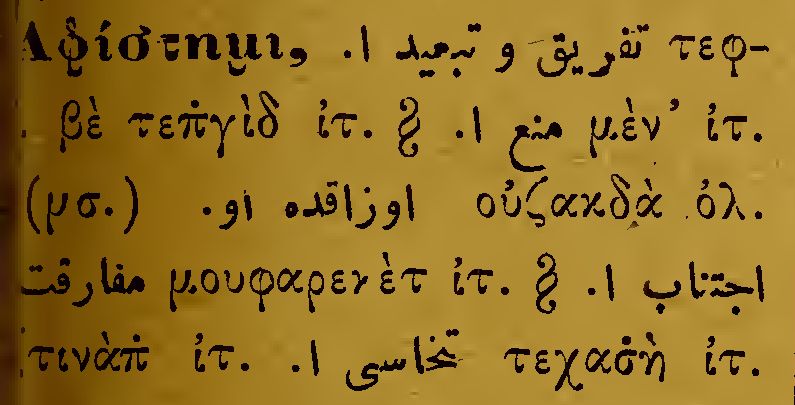 Ἀφίστημι, تفریق و تبعید ا. τεφ-
βὲ τεπ̇γὶδ ἰτ. § منع ا. μὲν’ ἰτ.
(μσ.) اوزاقده او. οὐζακδὰ ὀλ.
مفارقت μουφαρεκὲτ ἰτ. § اجتناب ا.
τινὰπ̇ ἰτ. تخاسی ا. τεχασ̇ὴ ἰτ.